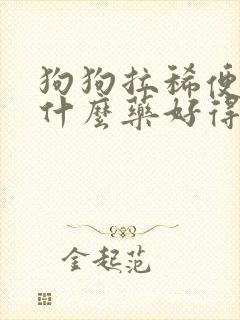 狗狗拉稀便
什麼藥好得
金起范